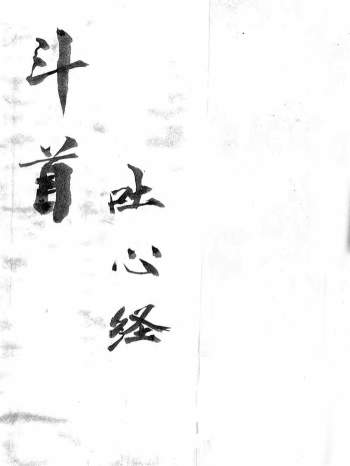 斗首
吐心经